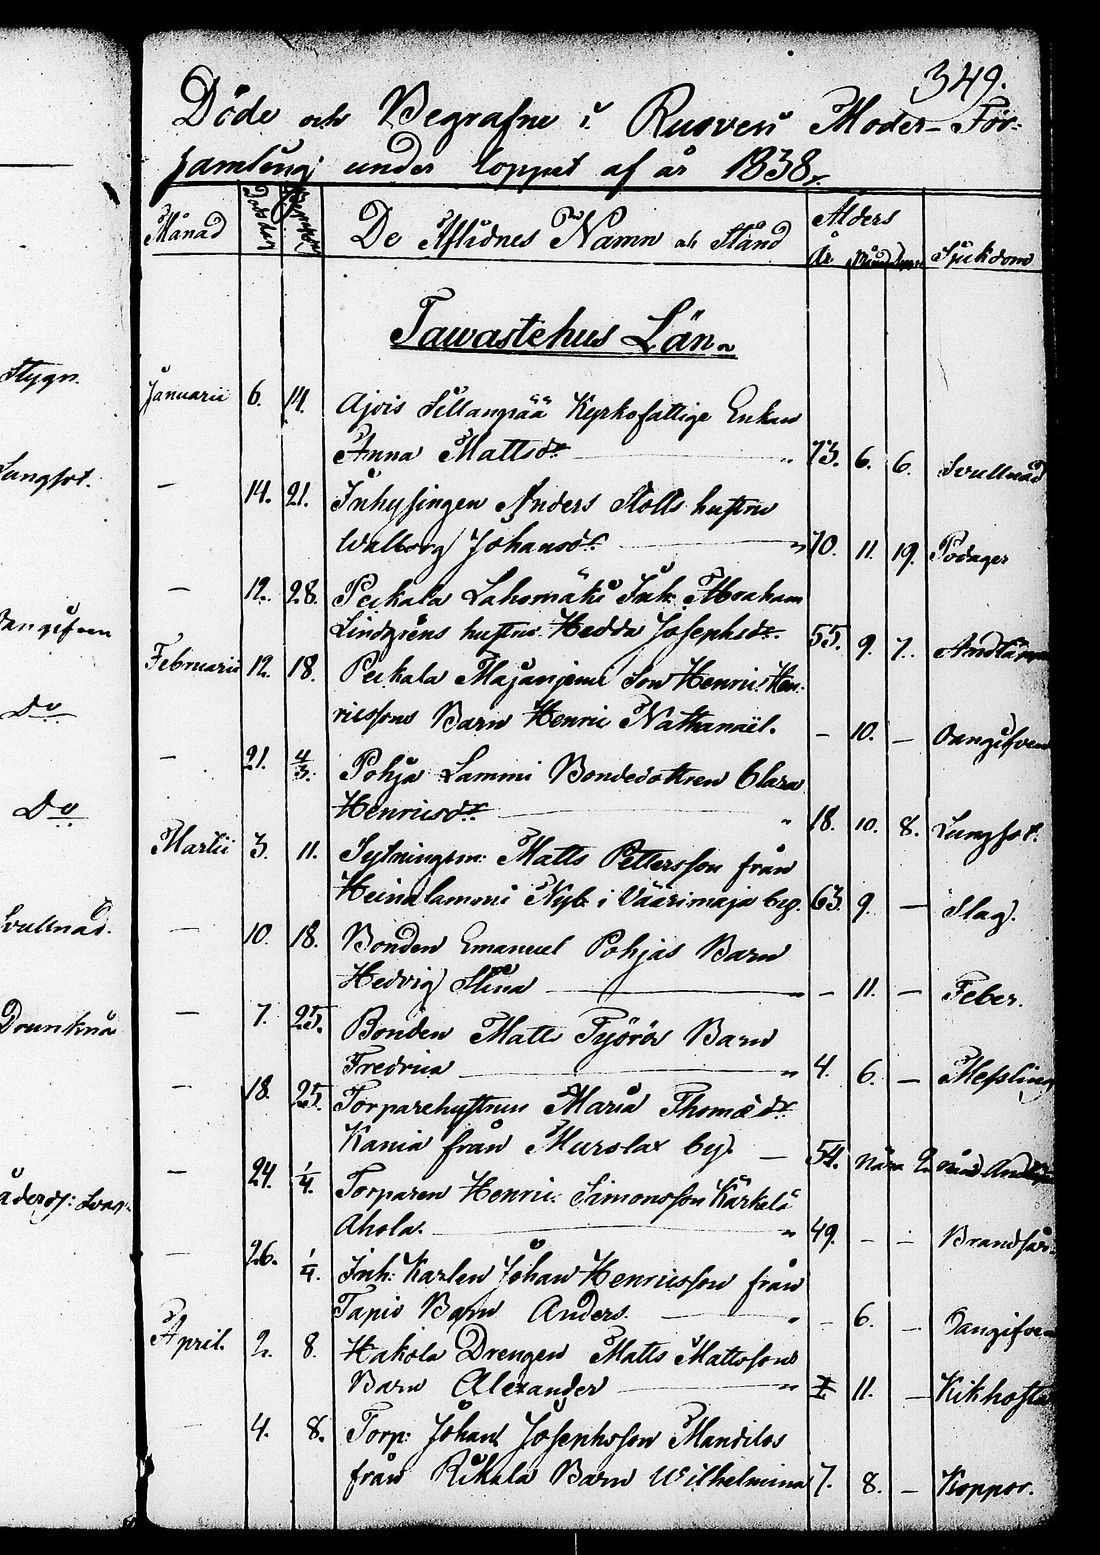 Stygn.
Lungsot.
Oangifven
Do
Do
Svullnad.
Drunknad
349.
Döde och Begrafne i Ruovesi Moder-För-
samling under loppet af år 1838.
Månad De Aflidnes Namn och Stånd Ålders
År Sjukdom
Tawastehus Län.
Januarii 6. 14. Ajois Sillanpää Kyrkofattige Enkan
Anna Mattsdr 73. 6. 6. Svullnad
— 14. 21. Inhysingen Anders Stolts hustru
Walborg Johansdr 70. 11. 19. Podager
— 12. 28. Pukala Lahomäki Inh. Abraham
Lindgréns hustru Hedda Josephsdr 55. 9. 7.
Februarii 12. 18. Pukala Son Henric Hen-
ricssons Barn Henric Nathanaël. — 10. — Oangifven
— 21. 4/3. Pohja Lammi Bondedottren Clara
Henricsdr 18. 10. 8. Lungsot.
Martii 3. 11. Sytningsm: Matts Pettersson från
Heinälammi Nyb. i Väärimaja by. 63. 9. — Slag.
— 10. 18. Bonden Emanuel Pohjas Barn
Hedvig Stina — 11. — Feber.
— 7. 25. Bonden Matts Barn
Fredrica 4. 6. — Messling
— 18. 25. Torparehustrun Maria Thomædr
Kania från by. — 54. nära
— 24. 1/4. Torparen Henric Simonsson Kärkelä
Ahola. 49. — — Brandsår
— 26. 1/4. Inh: Karlen Johan Henricsson från
Tapio Barn Anders. — 6. — Oangifven
April. 2. 8. Hakola Drengen Matts Mattssons
Barn Alexander 11. — Kikhosta
4. 8. Torp: Johan Josephsson Mandilos
från Barn Wilhelmina 7. 8. — Koppor.